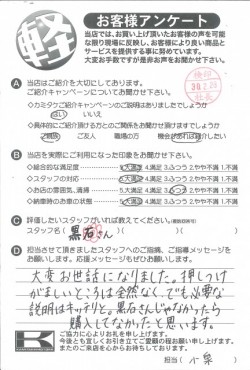 軽
お客様アンケート
当店では、お買い上げ頂いたお客様の声を可能
な限り現場に反映し、お客様により良い商品と
サービスを提供する事に努めています。
大変お手数ですが是非お声をお聞かせ下さい。
A 当店はご紹介を大切にしております。
ご紹介キャンペーンについてお聞かせ下さい。
◇カミタケご紹介キャンペーンのご説明はありましたでしょうか
はい いいえ
◇具体的にご紹介頂ける方との関係をお聞かせ頂けますでしょうか
ご家族 ご友人 職場の方 機会があれば紹介したい
B 当店を実際にご利用になった印象をお聞かせ下さい。
◆総合的な満足度 5.大満足 4.満足 3.ふつう 2.やや不満 1.不満
◆スタッフの対応 5.大満足 4.満足 3.ふつう 2.やや不満 1.不満
◆お店の雰囲気、清掃 5.大満足 4.満足 3.ふつう 2.やや不満 1.不満
◆納車時のお車の状態 5.大満足 4.満足 3.ふつう 2.やや不満 1.不満
C 評価したいスタッフがいれば教えてください。(複数回答可)
スタッフ名( 黒石さん )
D 担当させて頂きましたスタッフへのご指摘、ご意見メッセージを
お願いします。応援メッセージもぜひお願いします。
大変お世話になりました。押しつけ
がましいところは全然なく、でも必要な
説明はキッチリと。黒石さんじゃなかったら
購入してなかったと思います。
K
ご協力に心よりお礼を申し上げます。
今後とも宜しくお引き立てご愛顧の程お願い申し上げます。
またのご来店を心よりお待ちしております。
担当(